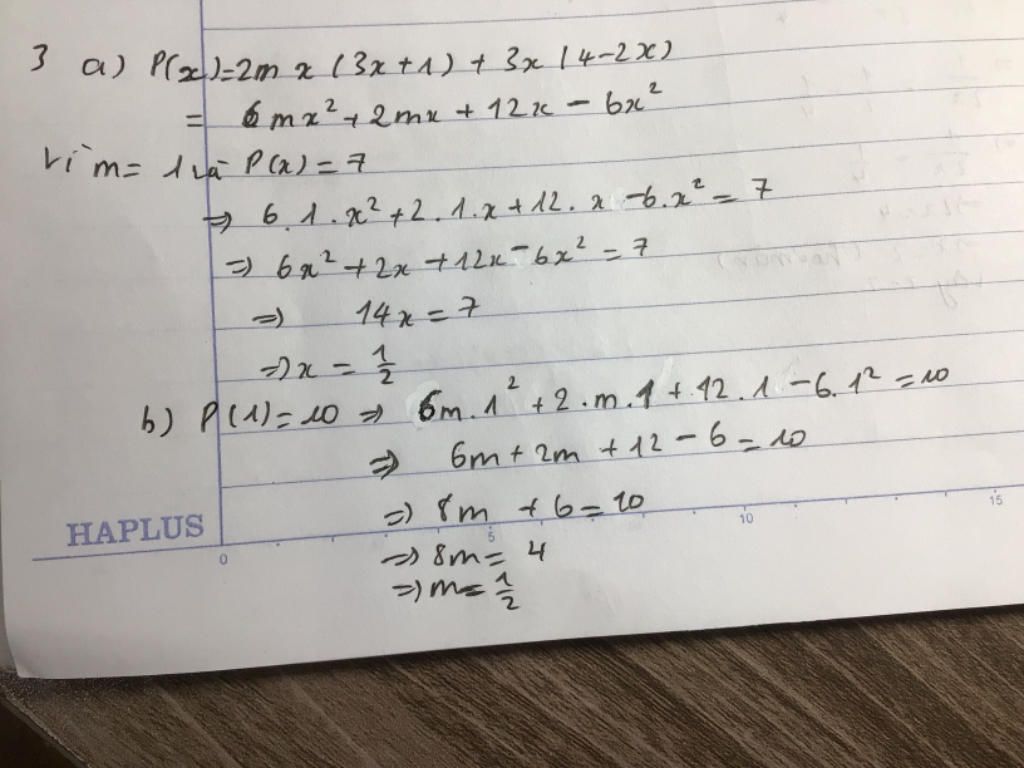 3 a) P(x)=2mx(3x+1)+3x(4-2x)
= 6mx²+2mx+12x-6x²
Vì m=1 và P(x)=7
⇒ 6.1.x²+2.1.x+12.x-6.x²=7
⇒ 6x²+2x+12x-6x²=7
⇒ 14x=7
⇒ x=1/2
b) P(1)=10 ⇒ 6m.1²+2.m.1+12.1-6.1²=10
⇒ 6m+2m+12-6=10
⇒ 8m+6=10
⇒ 8m=4
⇒ m=1/2
HAPLUS
0 5 10 15